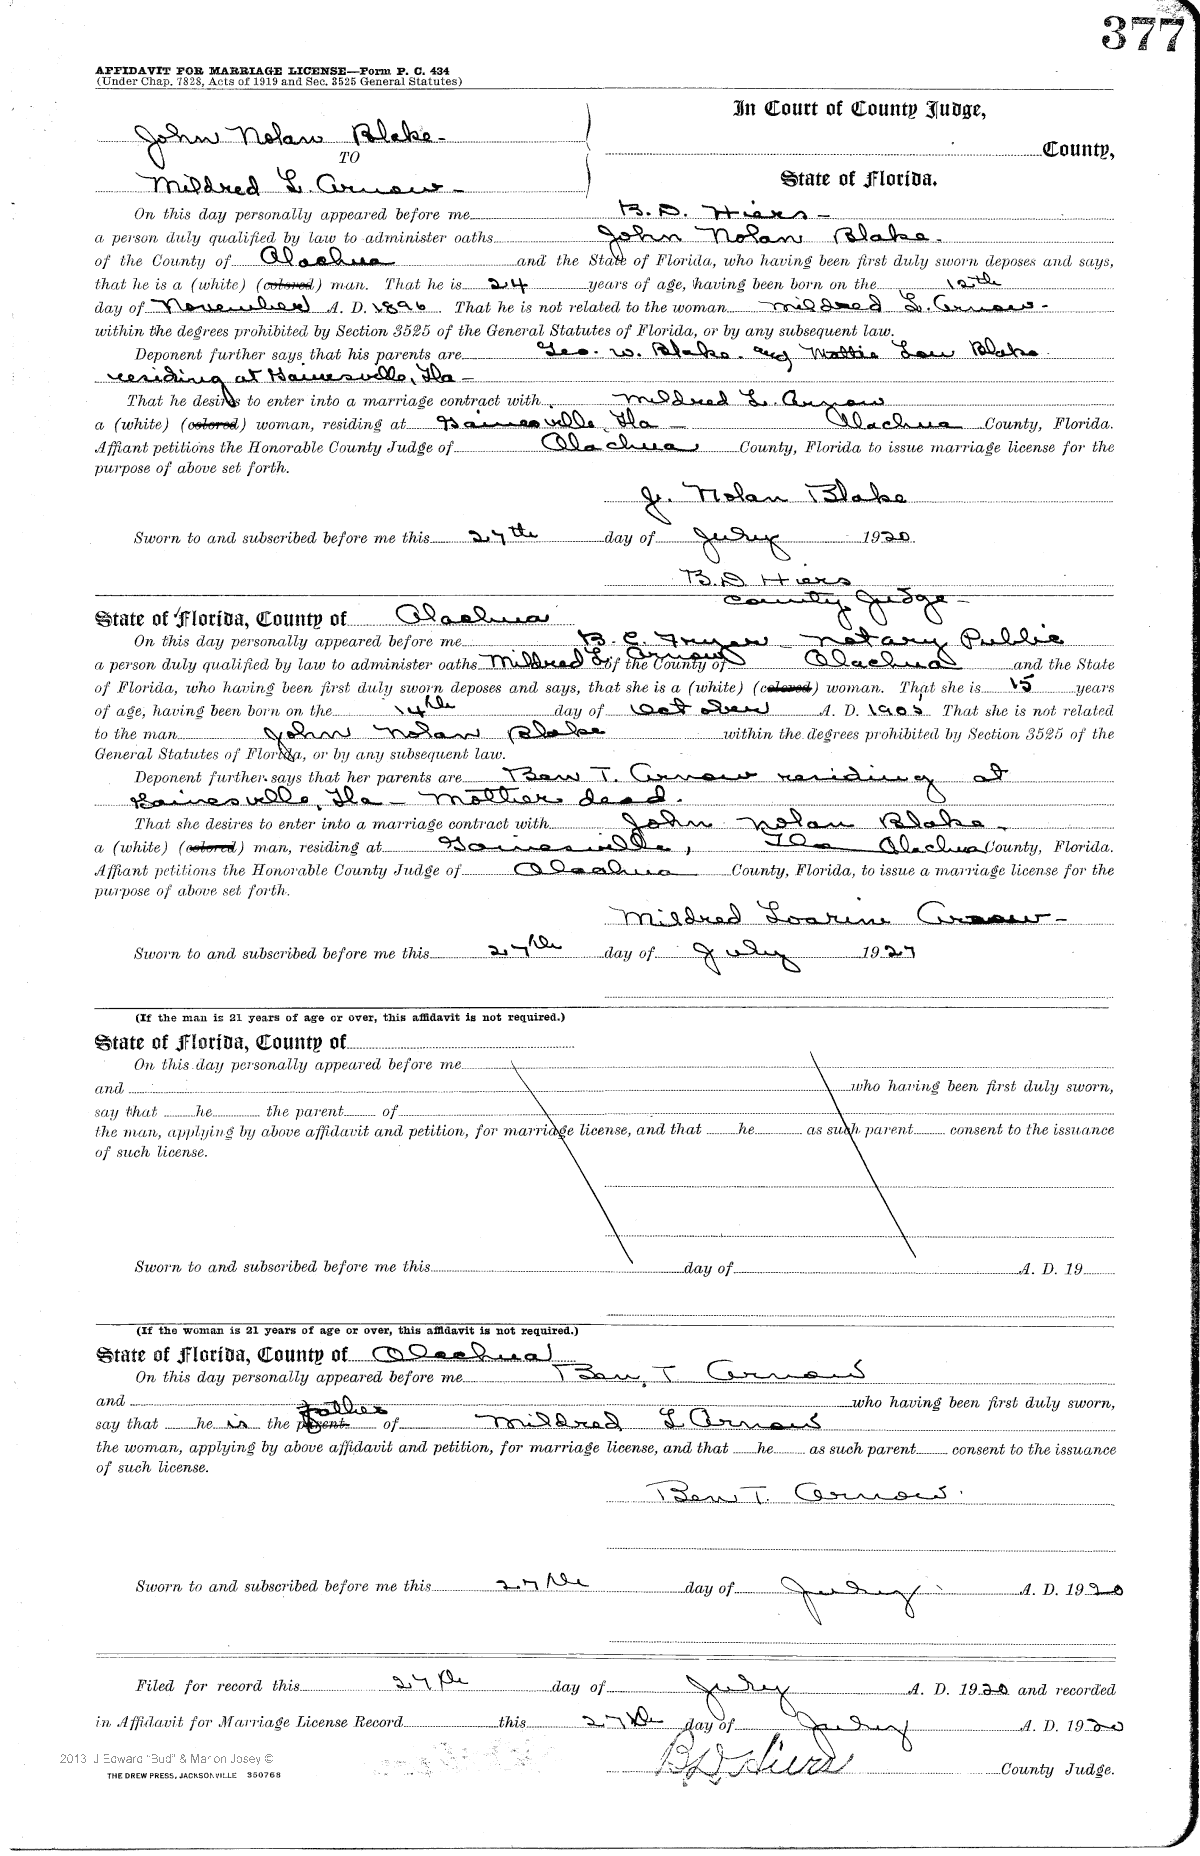 377
AFFIDAVIT FOR MARRIAGE LICENSE—Form P. C. 434
(Under Chap. 7828, Acts of 1919 and Sec. 3525 General Statutes)
John Nolan Blake-
TO
Mildred L. Arnow-
In Court of County Judge,
County,
State of Florida.
On this day personally appeared before me B. D. Hiers-
a person duly qualified by law to administer oaths John Nolan Blake.
of the County of Alachua and the State of Florida, who having been first duly sworn deposes and says,
that he is a (white) (colored) man. That he is 24 years of age, having been born on the 12th
day of November A. D. 1896 That he is not related to the woman Mildred L. Arnow-
within the degrees prohibited by Section 3525 of the General Statutes of Florida, or by any subsequent law.
Deponent further says that his parents are Geo. W. Blake. and Mattie Lou Blake
residing at Gainesville, Fla-
That he desires to enter into a marriage contract with Mildred L. Arnow
a (white) (colored) woman, residing at Gainesville, Fla- Alachua County, Florida.
Affiant petitions the Honorable County Judge of Alachua County, Florida to issue marriage license for the
purpose of above set forth.
J. Nolan Blake
Sworn to and subscribed before me this 27th day of July 1920.
B. D Hiers
County Judge-
State of Florida, County of Alachua
On this day personally appeared before me B. C. Fryer Notary Public
a person duly qualified by law to administer oaths Mildred L. Arnow of the County of Alachua and the State
of Florida, who having been first duly sworn deposes and says, that she is a (white) (colored) woman. That she is 15 years
of age, having been born on the 14th day of October A. D. 1905 That she is not related
to the man John Nolan Blake within the degrees prohibited by Section 3525 of the
General Statutes of Florida, or by any subsequent law.
Deponent further says that her parents are Ben T. Arnow residing at
Gainesville, Fla- Mother dead.
That she desires to enter into a marriage contract with John Nolan Blake.
a (white) (colored) man, residing at Gainesville, Fla Alachua County, Florida.
Affiant petitions the Honorable County Judge of Alachua County, Florida, to issue a marriage license for the
purpose of above set forth.
Mildred Loarine Arnow-
Sworn to and subscribed before me this 27th day of July 1927
(If the man is 21 years of age or over, this affidavit is not required.)
State of Florida, County of
On this day personally appeared before me
and who having been first duly sworn,
say that he the parent of
the man, applying by above affidavit and petition, for marriage license, and that he as such parent consent to the issuance
of such license.
Sworn to and subscribed before me this day of A. D. 19
(If the woman is 21 years of age or over, this affidavit is not required.)
State of Florida, County of Alachua
On this day personally appeared before me Ben. T Arnow
and who having been first duly sworn,
father
say that he is the parent of Mildred L Arnow
the woman, applying by above affidavit and petition, for marriage license, and that he as such parent consent to the issuance
of such license.
Ben T. Arnow.
Sworn to and subscribed before me this 27th day of July A. D. 1920
Filed for record this 27th day of July A. D. 1920 and recorded
in Affidavit for Marriage License Record this 27th day of July A. D. 1920
BD Hiers County Judge.
2013 J Edward "Bud" & Marion Josey ©
THE DREW PRESS, JACKSONVILLE 350768